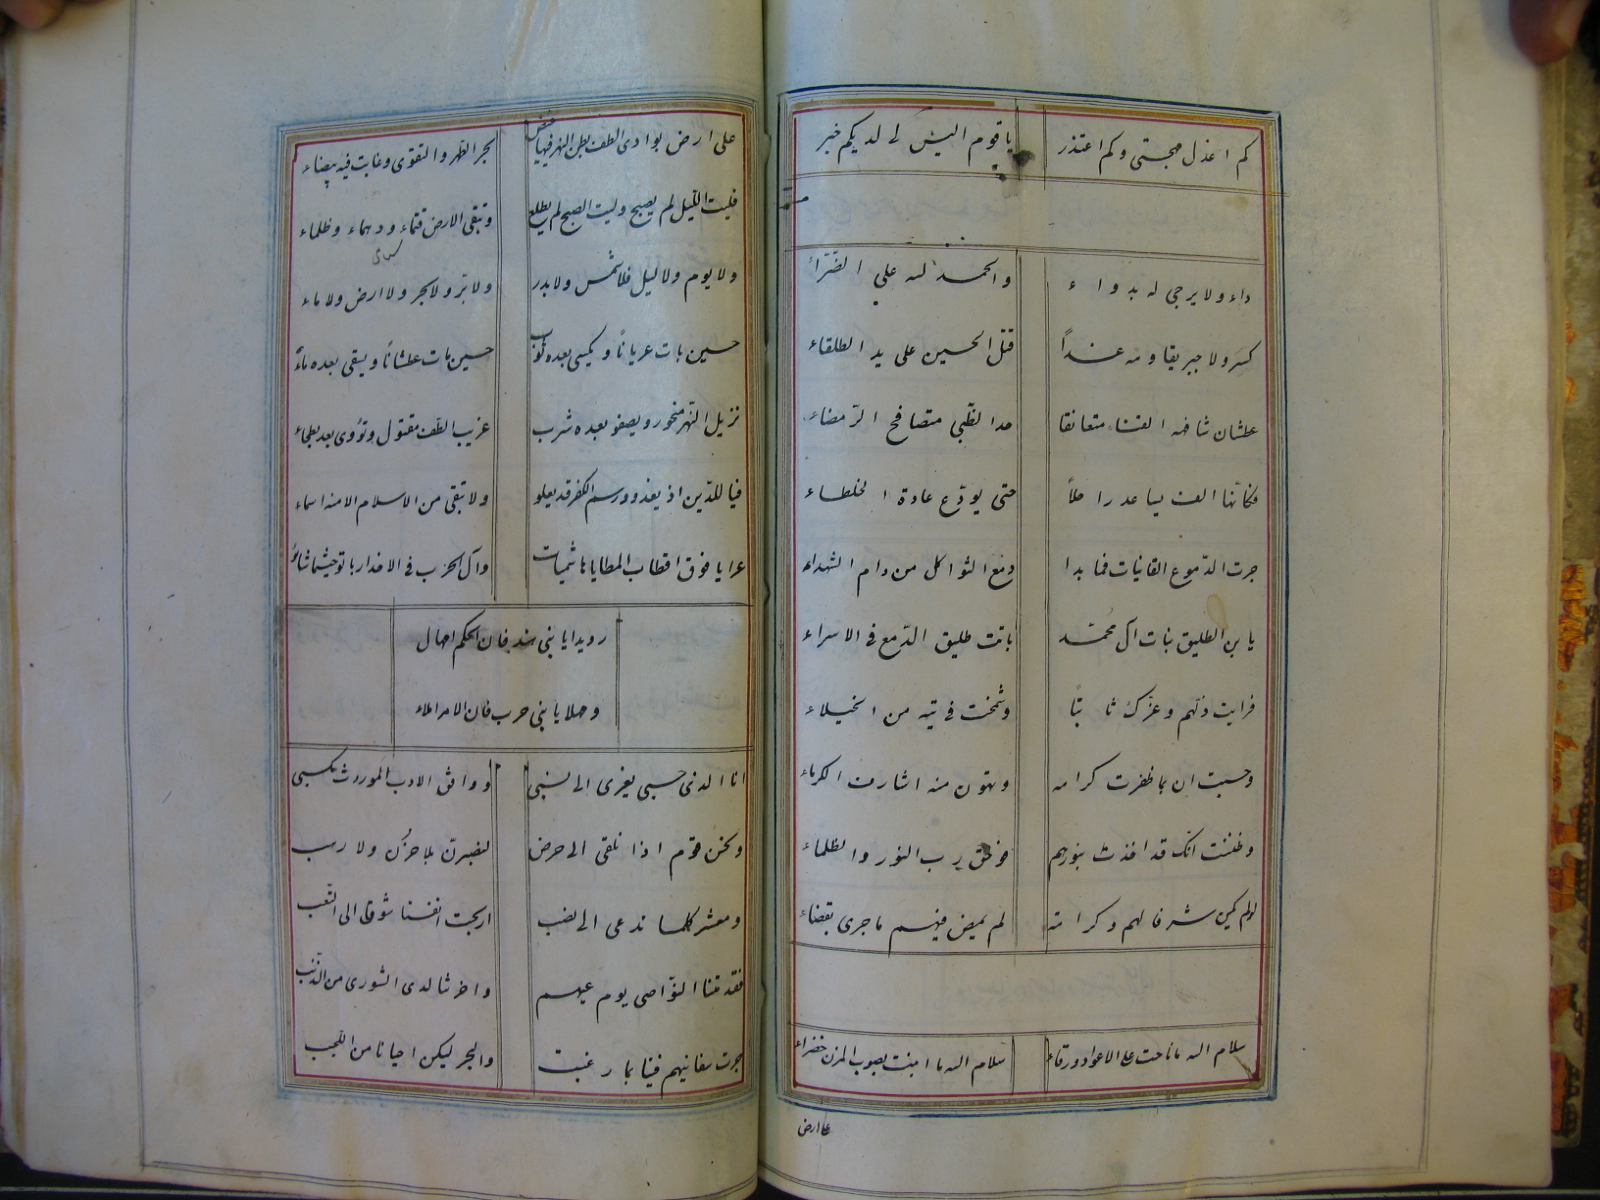 كم اعذل مهجتي وكم اعتذر يا قوم اليس لي لديكم خبر
داء ولا يرجى له بدواء والحمد لله علي الضّرّاء
كسر ولا جبر يقاومه غداً قتل الحسين على يد الطلقاء
عطشان شافهه القنا متعانقا حد الظّبي متصافح الرّمضاء
وكانّها الف يساعد راحلاً حتى يودّع عادة الخلطاء
جرت الدّموع القانيات فما بدا دمع الثواكل من دام الشهداء
يا بن الطليق بنات آل محمّد باتت طليق الدّمع في الاسراء
فرايت ذلّهم وعزّك ثابتاً وشمخت في تيه من الخيلاء
وحسبت ان بما ظفرت كرامه وتهون منه اشارت الكرماء
وظننت انّك قد اخذت بنورهم هو نحق رب النور والظلماء
لو لم يكن شرفا لهم وكرامة لم يمض فيهم ما جرى بقضاء
سلام الله ما ناحت على الاعواد ورقاء سلام الله ما ابنت بصوب المزن خضراء
على ارض
على ارض بوادي الطف بطن النهر فيها غيض بحر الطهر والتقوى وغابت فيه بيضاء
فليت اللّيل لم يصبح وليت الصبح لم يطلع وتبقى الارض قتماء ودهماء وظلماء
ولا يوم ولا ليل فلا شمس ولا بدر ولا برّ ولا بحر ولا ارض ولا ماء
حسين بات عرياناً ويكسى بعده ثوب حسين بات عطشاناً ويسقى بعده ماءٌ
نزيل النّهر منحور ويصفو بعده شرب غريب الطّف مقتول وتؤوى بعد بطحاء
فيا للدّين اذ يغدو ورسم الكفر قد يعلو ولا تبقى من الاسلام الا منه اسماء
عرايا فوق اقطاب المطايا هاشميات وآل الحرب في الاخدار باتو حيثما شاؤ
رويدا يا بني هند فان الحكم امهال
ومهلا يا بني حرب فان الامر املاء
انا الذي حسبي يعزى الى نسبي ووافق الادب الموروث مكسبي
ونحن قوم اذا نلقى الى حرض لضبرن بلا حزن ولا رهب
ومعشر كلما ندعى الى نصب اربحت انفسنا شوقا الى التّعب
فقدمتنا النّواصى يوم عيهم واخرتنا لدى الشورى من الذّنب
جرت سفانيهم فينا بما رغبت والبحر ليكن احيانا من اللّجب